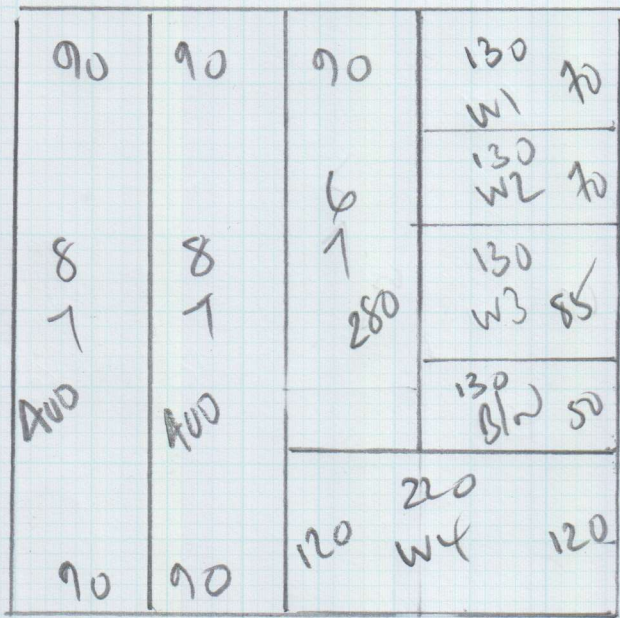 90
8
1
400
90
90
8
1
400
90
90
6
1
280
130
W1 70
130
W2 70
130
W3 85
130
B/N 50
220
120 W4 120